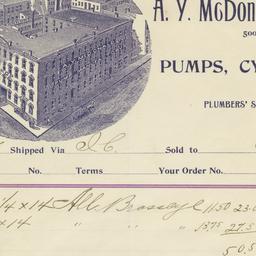 A. Y. McDon
500
PUMPS, CY
PLUMBERS' S
Shipped Via I.C. Sold to
No. Terms Your Order No.
1/4 x 14 All Brass Cyl 11.50 23.0
x 14 " " " 13.75 27.5
50.5